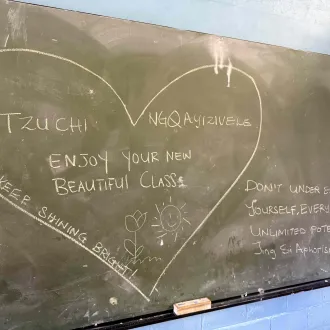 TZU CHI NGQAYIZIVELE
ENJOY YOUR NEW
BEAUTIFUL CLASS
KEEP SHINING BRIGHT!
DON'T UNDER
YOURSELF, EVERY
UNLIMITED
Jing Si